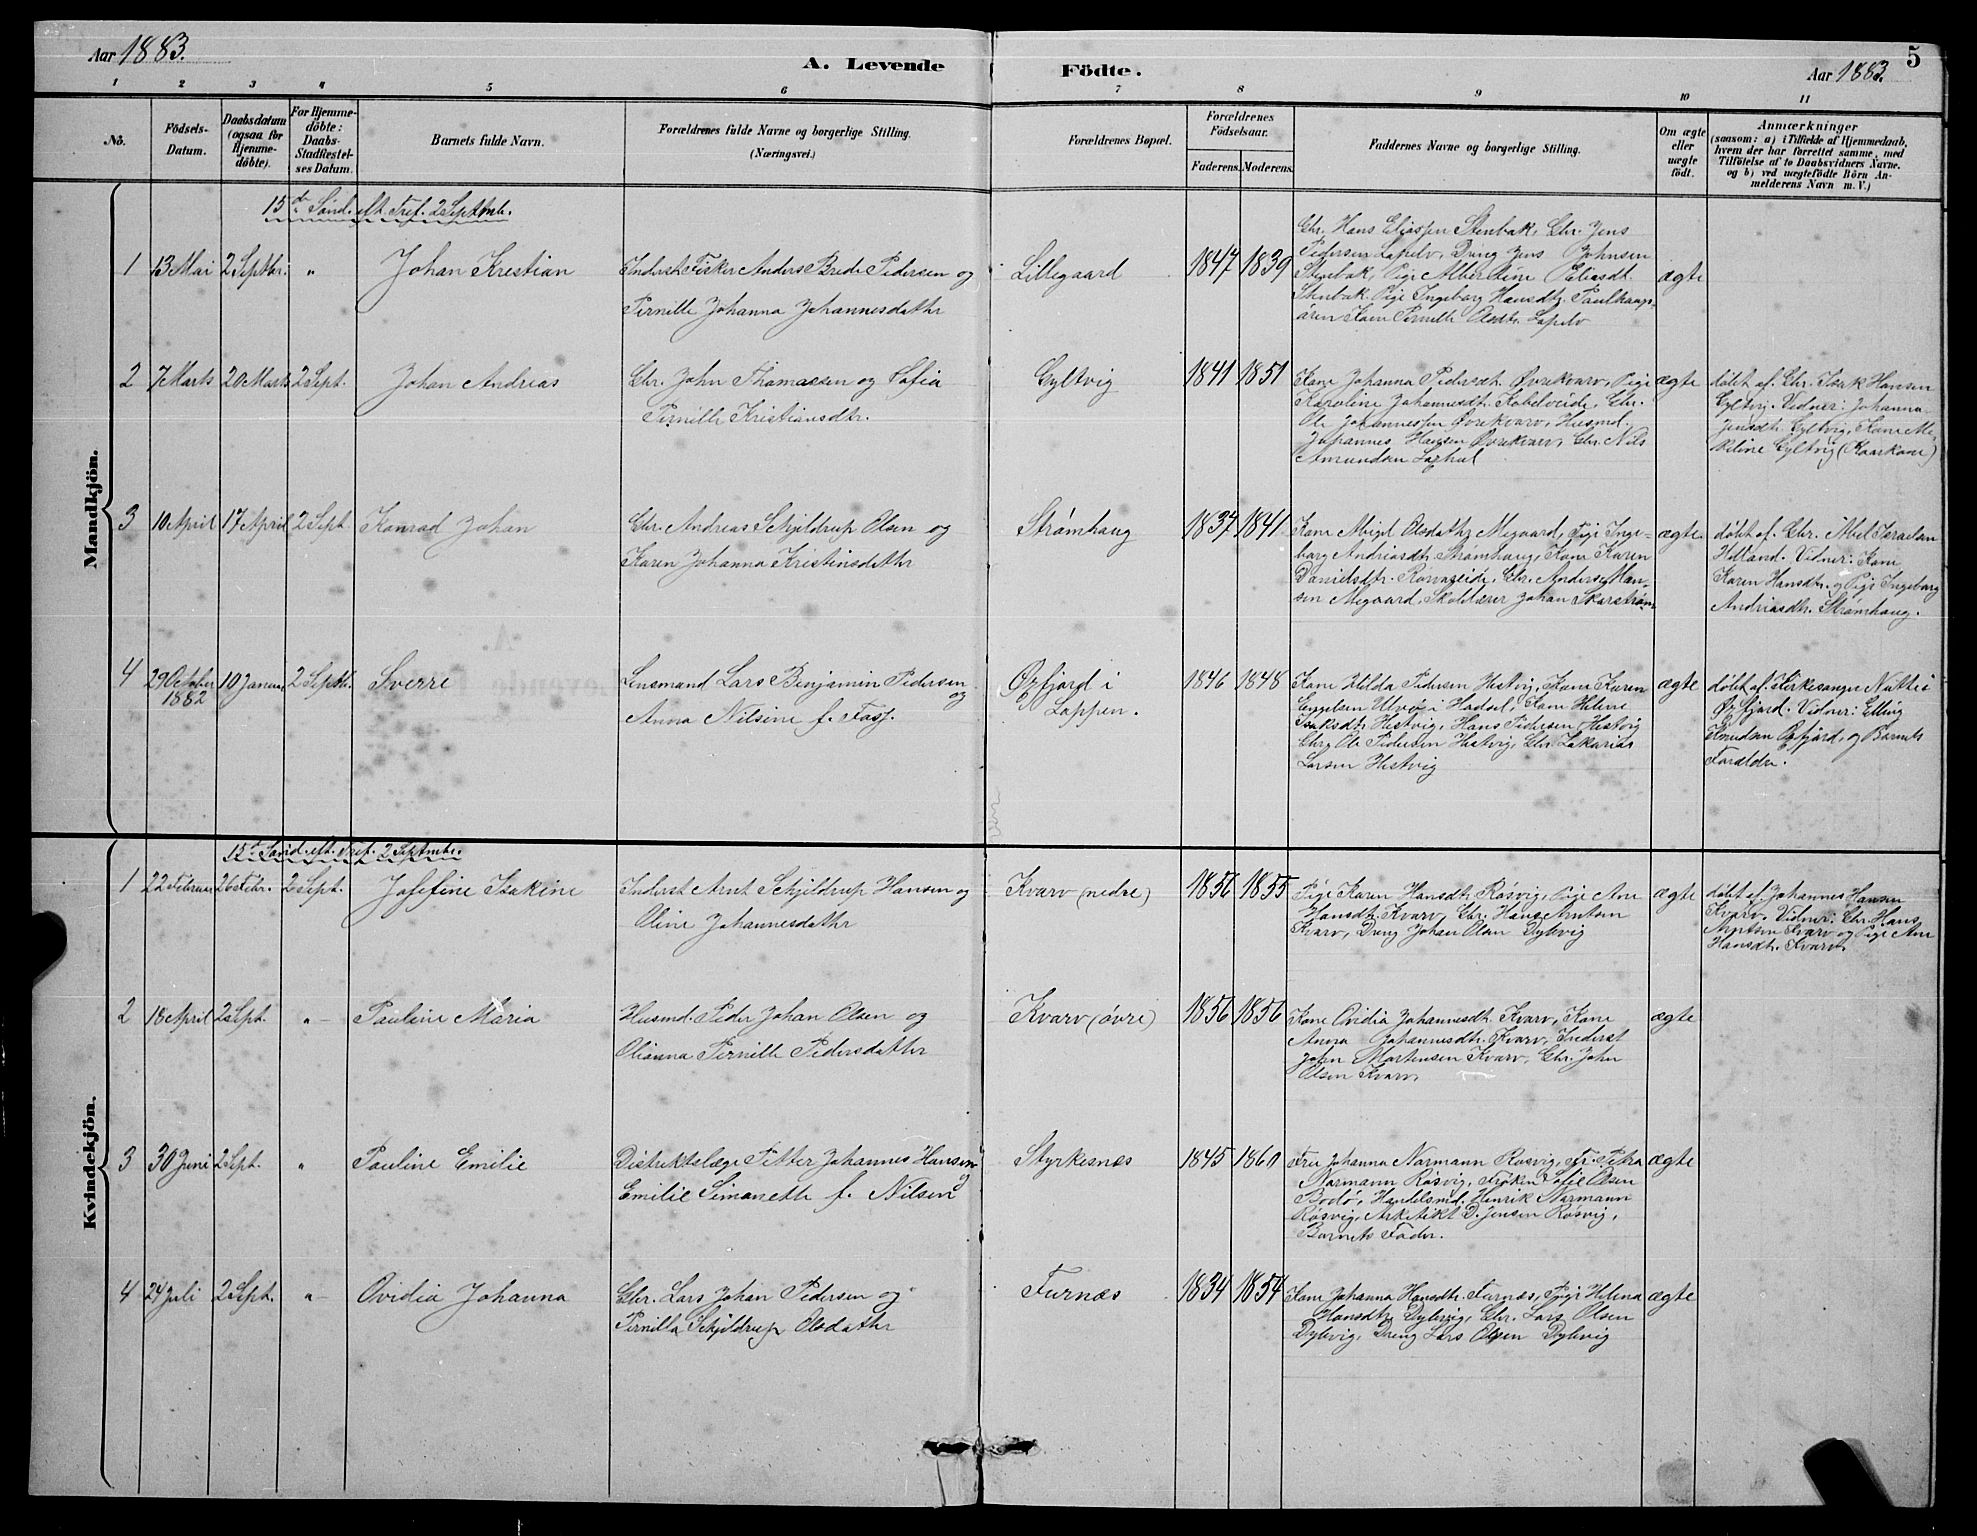 Aar 1883.
A. Levende Födte.
Aar 1883.
5
1 2 3 4 5 6 7 8 9 10 11
No.
Födsels-Datum.
Daabsdatum (ogsaa for Hjemme-döbte).
For Hjemme-döbte: Daabs-Stadfæstel-ses Datum.
Barnets fulde Navn.
Forældrenes fulde Navne og borgerlige Stilling.
(Næringsvei.)
Forældrenes Bopæl.
Forældrenes Födselsaar.
Faderens. Moderens.
Faddernes Navne og borgerlige Stilling.
Om ægte eller uægte födt.
Anmærkninger
(saasom: a) i Tilfælde af Hjemmedaab,
hvem der har forrettet samme, med
Tilföielse af to Daabsvidners Navne.
og b) ved uægtefödte Börn An-
melderens Navn m. V.)
Mandkjön.
15de Sönd. eft. Tref. 2 Septmb.
1 13 Mai 2 Septbr. „ Johan Kristian
Inderst Fisker Anders Brede Pedersen og
Pernille Johanna Johannesdattr
Lillegaard 1847 1839
Gbr. Hans Eliassen Stenbak, Gbr. Jens
Pedersen Lapelv, Dreng Jens Johnsen
Stenbak, Pige Albertine Eliasdt.
Stenbak. Pige Ingeborg Hansdtr. Paulhaug-
ören Kone Pernille Olsdtr. Lapelv
ægte
2 7 Marts 20 Marts 2 Sept. Johan Andreas
Gbr. John Thomassen og Sofia
Pernille Kristiansdtr.
Gyltvig 1841 1851
Kone Johanna Pedersdt. Øvrekvarv, Pige
Karoline Johannesdt. Kobelveide, Gbr.
Ole Johannessen Øvrekvarv, Husmd.
Johannes Hansen Øvrekvarv, Gbr. Nils
Amundsen Laxhol
ægte
döbt af Gbr. Isak Hansen
Gyltvig. Vidner: Johanna
Jensdtr. Gyltvig, Kone Me-
keline Gyltvig (Kaarkone)
3 10 April 17 April 2 Sept. Konrad Johan
Gbr. Andreas Schjeldrup Olsen og
Karen Johanna Kristinsdattr
Strömhaug 1837 1841
Kone Abigel Olsdattr Megaard, Pige Inge-
borg Andreasdt. Strömhaug, Kone Karen
Danielsdtr. Rörvageide, Gbr. Anders Han-
sen Megaard, Skolelærer Johan Skarström
ægte.
döbt af. Gbr. Abel Israelsen
Helland. Vidner: Kone
Karen Hansdtr. og Pige Ingeborg
Andreasdtr. Strömhaug.
4 29 October 1882 10 Januar 2 Septbr. Sverre
Lensmand Lars Benjamin Pedersen
og
Anna Nilsine f. Fasj.
Øxfjord i
Loppen.
1846 1848
Kone Hilda Pedersen Hestvig, Kone Karen
Engelsen Ulvø i Hadsel, Kone Helene
Isaksdtr. Hestvig, Hans Pedersen Hestvig
Gbr. Ole Pedersen Hestvig, Gbr. Zakarias
Larsen Hestvig
ægte
döbt af. Kirkesanger i
Øxfjord. Vidner: Elling
Øxfjord, og Barnets
Forældre.
Kvindekjön.
15de Sönd. eft. Tref. 2 Septmbr.
1 22 Februar 26 Febr. 2 Sept. Josefine Isakine
Inderst Arnt Schjeldrup Hansen og
Oline Johannesdattr
Kvarv (nedre) 1856 1855
Pige Karen Hansdtr. Røsvig, Pige Ane
Hansdt. Kvarv, Gbr. Hans Arntsen
Kvarv, Dreng Johan Olsen Dybvig
ægte
döbt af. Johannes Hansen
Kvarv. Vidner: Gbr. Hans
Arntsen Kvarv og Pige Ane
Hansdt. Kvarv.
2 18 April 2 Sept. „ Pauline Maria
Husmd. Peder Johan Olsen og
Olianna Pernille Pedersdattr
Kvarv (övre) 1856 1856
Kone Ovidia Johannesdt. Kvarv, Kone
Anna Johannesdtr. Kvarv, Inderst
John Mortensen Kvarv, Gbr. John
Olsen Kvarv,
ægte
3 30 Juni 2 Sept. „ Pauline Emilie
Distriktslæge Petter Johannes Hansen
og
Emilie Simonette f. Nilsen
Styrkesnæs 1845 1860
Fru Johanna Normann Rösvig, Fr. Petra
Normann Rösvig, Fröken Sofie Olsen
Bodö, Handelsmd. Henrik Normann
Rösvig, Arkitekt D. Jensen Rösvig,
Barnets Fader.
ægte
4 24 Juli 2 Sept. „ Ovidia Johanna
Gbr. Lars Johan Pedersen og
Pernilla Schjeldrup Olsdattr
Furnæs 1834 1854
Kone Johanna Hansdtr. Furnæs, Pige Helena
Hansdtr. Dybvig, Gbr. Lars Olsen
Dybvig, Dreng Lars Olsen Dybvig
ægte